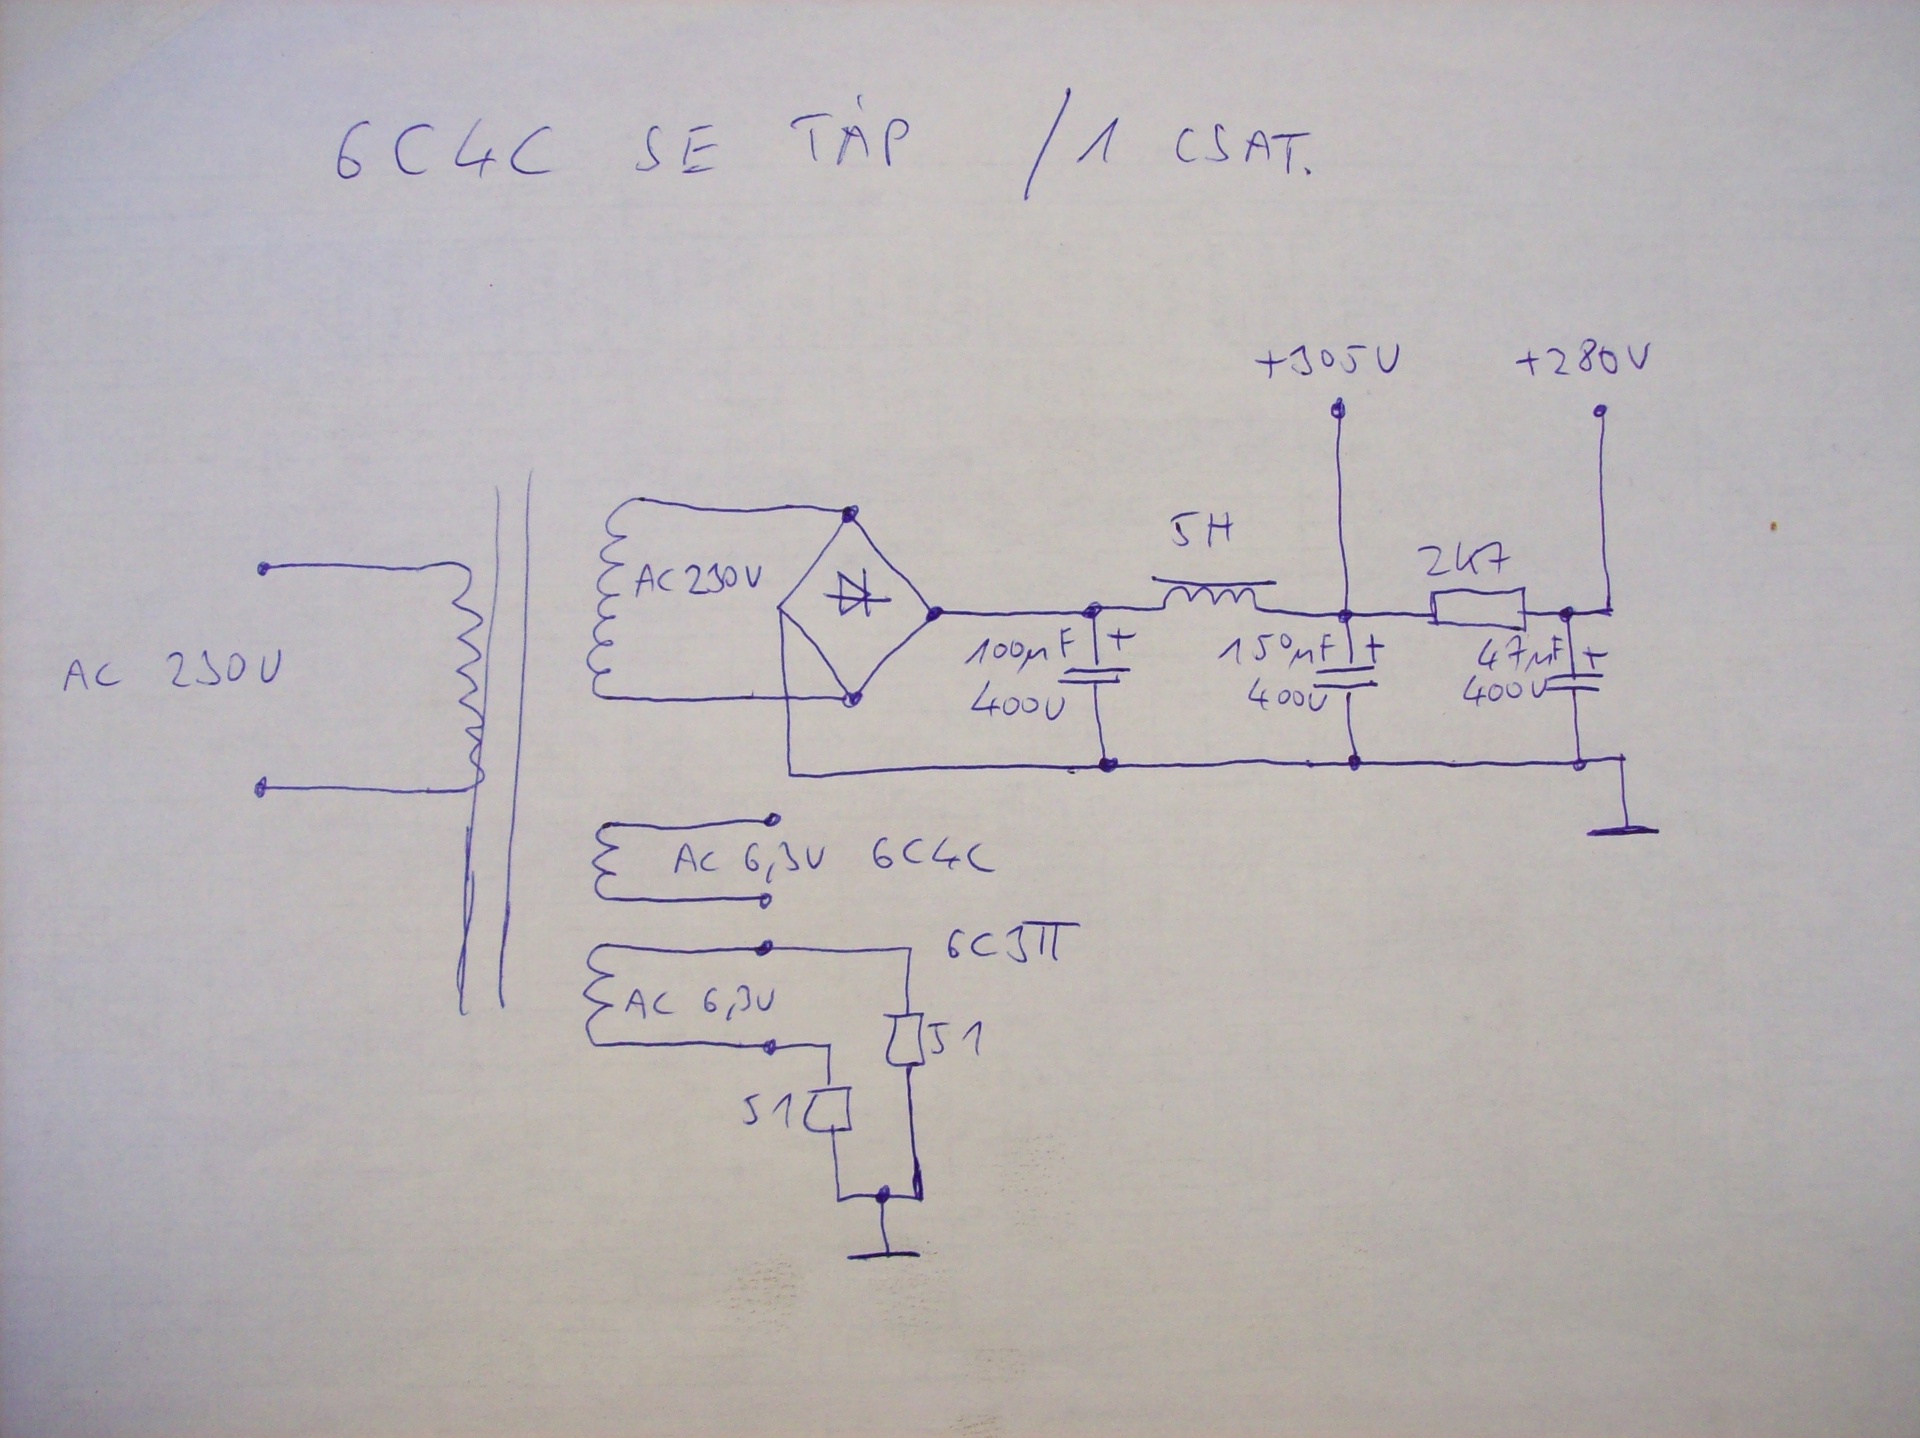 6C4C SE TÁP /1 CSAT.
+305V +280V
5H
2k7
AC 230V
AC 230V
100µF +
400V
150µF +
400V
47µF +
400V
AC 6,3V 6C4C
6C3П
AC 6,3V
51
51